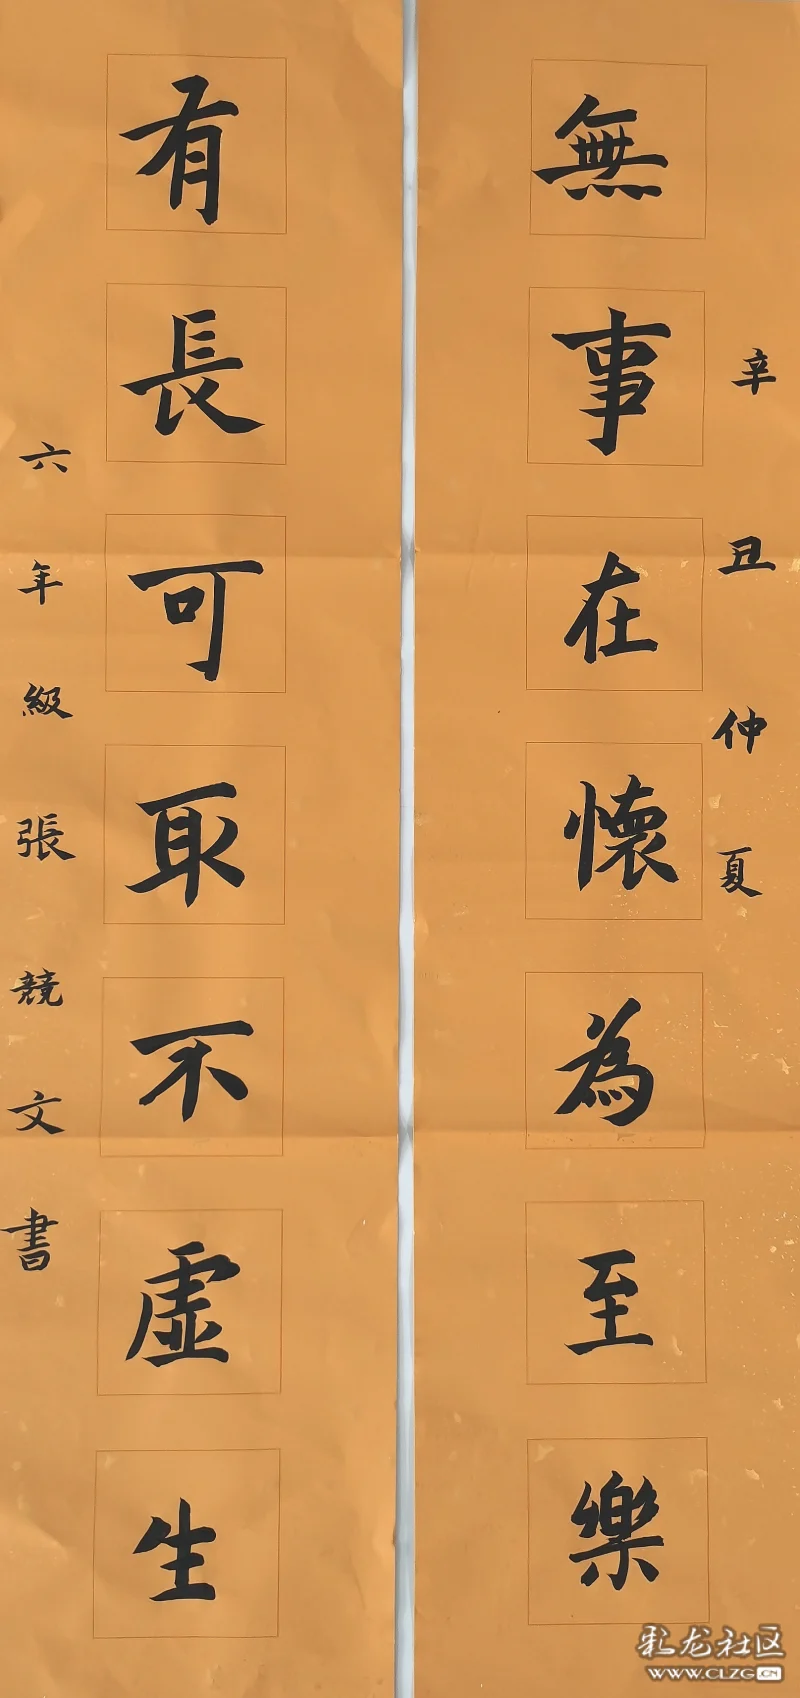 辛丑仲夏
無事在懷為至樂
有長可取不虛生
六年級張競文書
彩龙社区
WWW.CLZG.CN